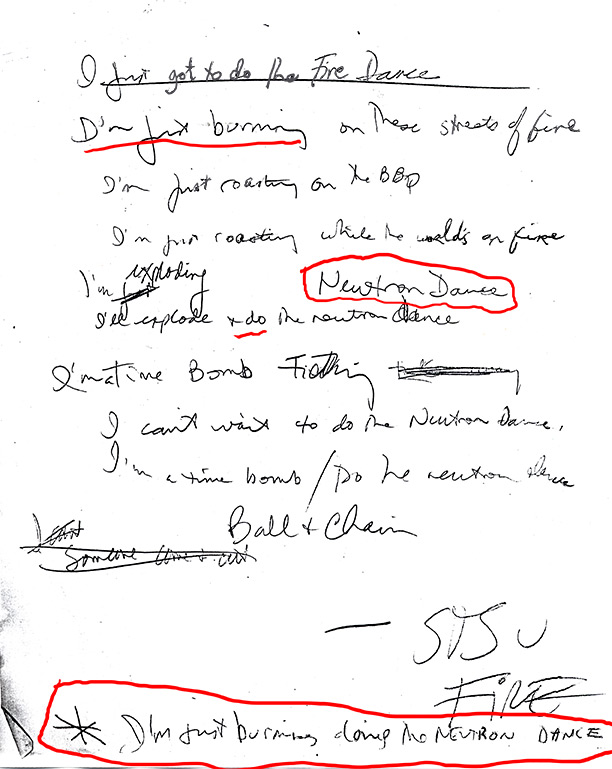 I just got to do the Fire Dance
I'm just burning on these streets of fire
I'm just roasting on the BBQ
I'm just roasting while the world's on fire
I'm exploding Neutron Dance
I'll explode + do the neutron dance
I'm a time Bomb
I can't wait to do the Neutron Dance.
I'm a time bomb / Do the neutron dance
Ball + Chain
I
Someone
FIRE
* I'm just burning doing the NEUTRON DANCE